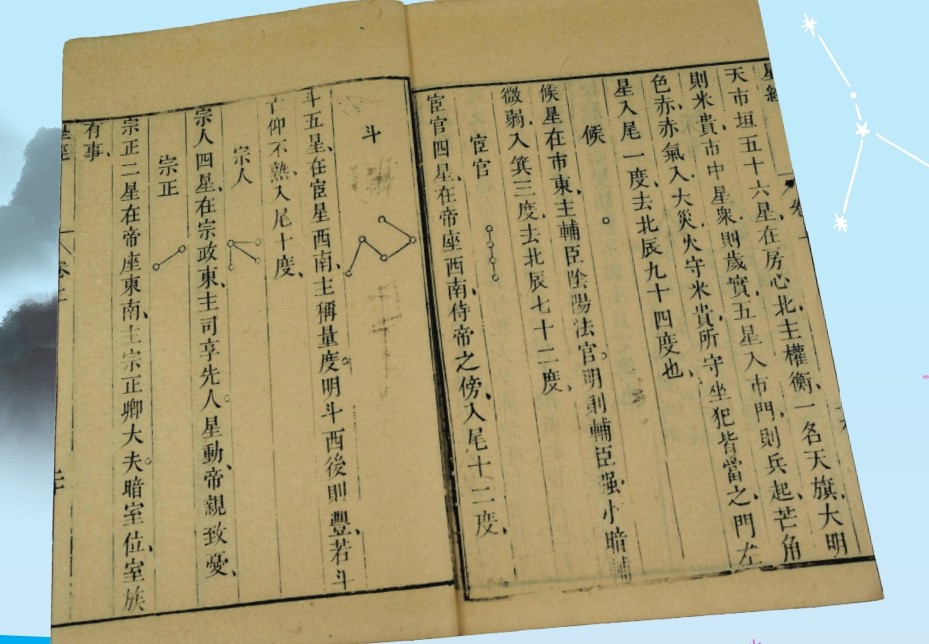 星經
天市垣五十六星在房心北主權衡一名天旗大明
則米貴市中星衆則歲實五星入市門則兵起芒角
色赤赤氣入大災火守米貴所守坐犯皆當之門左
星入尾一度去北辰九十四度也
候
候星在市東主輔臣陰陽法官明則輔臣强小暗輔
微弱入箕三度去北辰七十二度
宦官
宦官四星在帝座西南侍帝之傍入尾十二度
斗
斗五星在宦星西南主稱量度明斗西後則豐若斗
亡仰不熟入尾十度
宗人
宗人四星在宗政東主司享先人星動帝親致憂
宗正
宗正二星在帝座東南主宗正卿大夫暗室位室族
有事